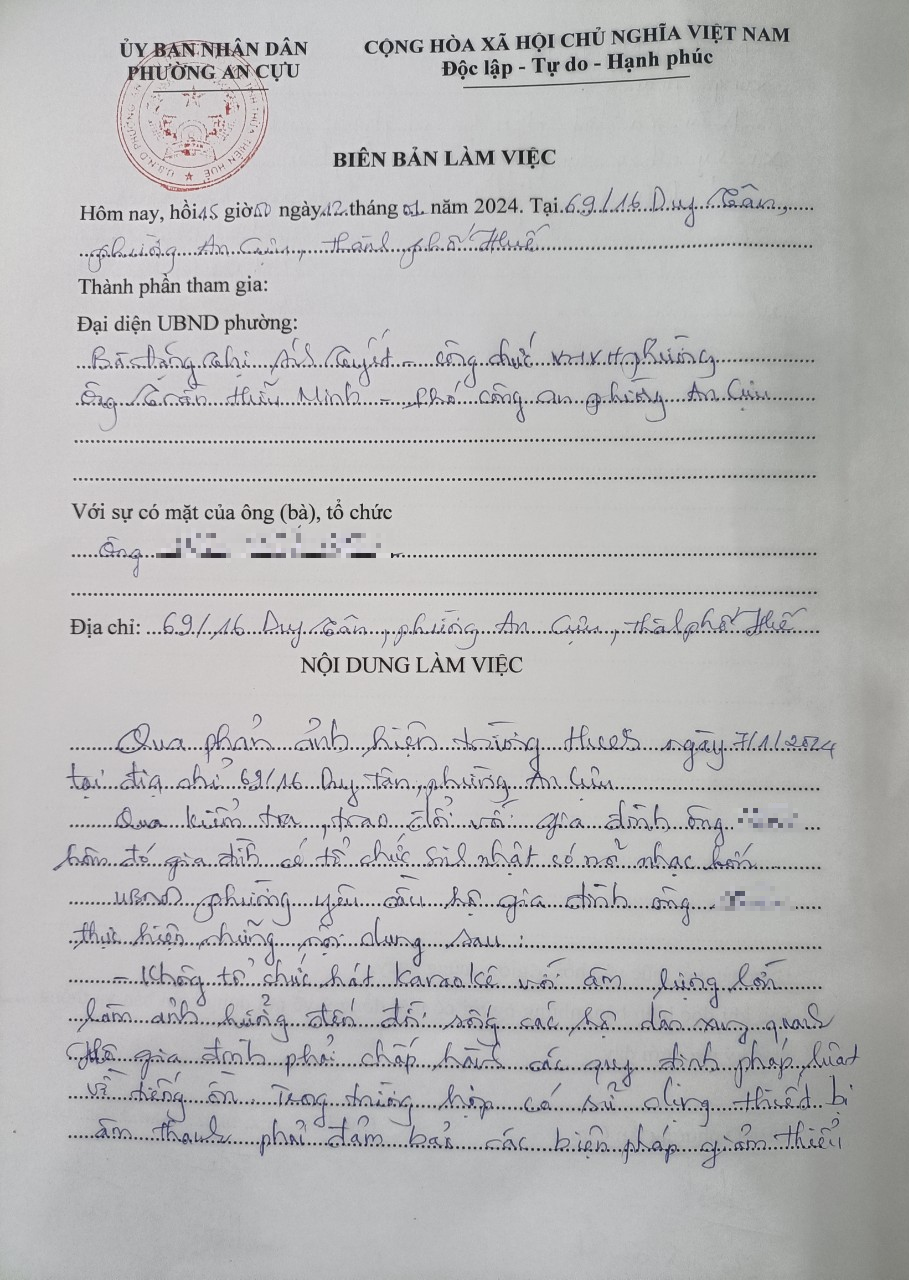 ỦY BAN NHÂN DÂN
PHƯỜNG AN CỰU
CỘNG HÒA XÃ HỘI CHỦ NGHĨA VIỆT NAM
Độc lập - Tự do - Hạnh phúc
BIÊN BẢN LÀM VIỆC
Hôm nay, hồi 15 giờ ngày 12 tháng 01 năm 2024. Tại 69/16 Duy Tân,
phường An Cựu, thành phố Huế
Thành phần tham gia:
Đại diện UBND phường:
Bà Đặng Thị Tuyết - công chức phường
Ông Trần Hữu Minh - Phó công an phường An Cựu
Với sự có mặt của ông (bà), tổ chức
Ông
Địa chỉ: 69/16 Duy Tân, phường An Cựu, thành phố Huế
NỘI DUNG LÀM VIỆC
Qua phản ảnh hiện trường HueS ngày 7/1/2024
tại địa chỉ 69/16 Duy Tân, phường An Cựu
Qua kiểm tra, trao đổi với gia đình ông
hôm đó gia đình có tổ chức sinh nhật có mở nhạc lớn
UBND phường yêu cầu hộ gia đình ông
thực hiện những nội dung sau:
- Không tổ chức hát Karaokê với âm lượng lớn
làm ảnh hưởng đến đời sống các hộ dân xung quanh
Hộ gia đình phải chấp hành các quy định pháp luật
về tiếng ồn. Trong trường hợp có sử dụng thiết bị
âm thanh phải đảm bảo các biện pháp giảm thiểu